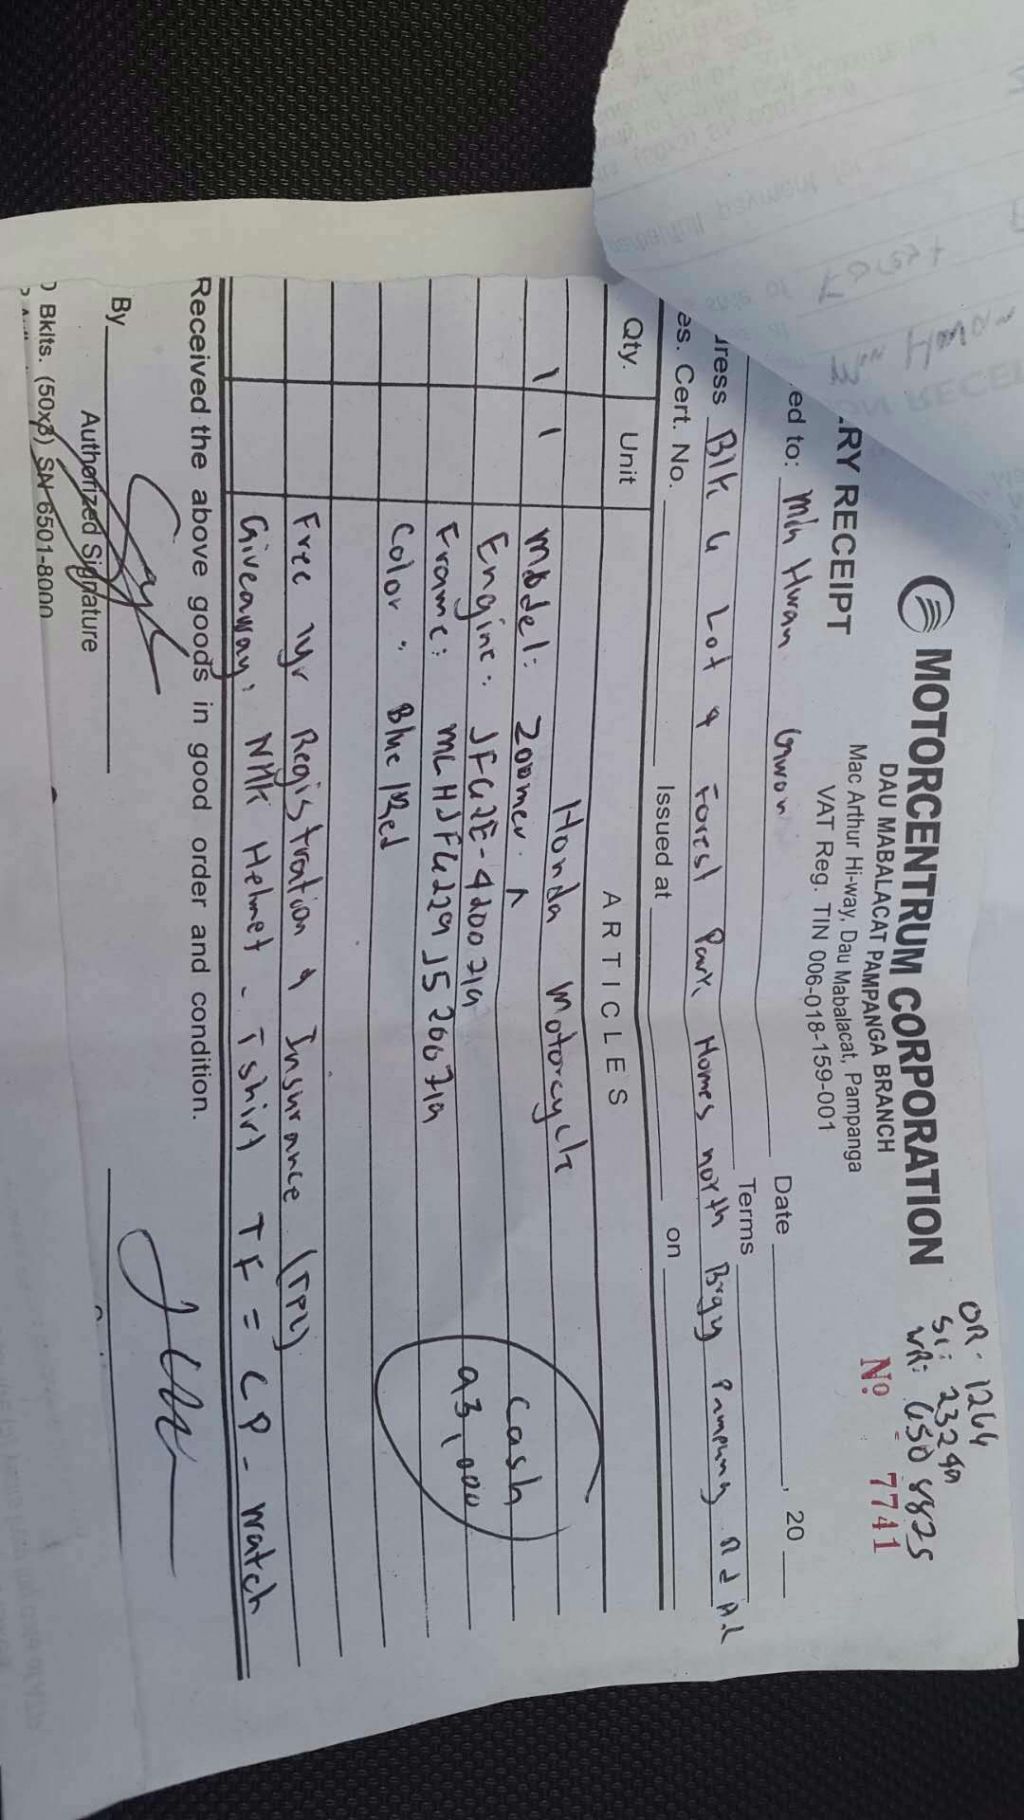 MOTORCENTRUM CORPORATION
DAU MABALACAT PAMPANGA BRANCH
Mac Arthur Hi-way, Dau Mabalacat, Pampanga
VAT Reg. TIN 006-018-159-001
OR - 1264
SI: 23249
WR: 6508825
RY RECEIPT
Nº 7741
ed to: Min Hwan Gwon Date , 20
ress Blk 6 Lot 9 Forest Park Homes north Brgy Pampang Terms
es. Cert. No. Issued at on
Qty. Unit ARTICLES
1 1 Honda Motorcycle
Model: Zoomer X
Engine: JF62E-4200719 Cash
Frame: MLHJF6229J5200719 93,000
Color: Blue/Red
Free 1yr Registration & Insurance (TPL)
Giveaway: NHK Helmet - Tshirt TF = CP - watch
Received the above goods in good order and condition.
By
Authorized Signature
Bklts. (50x3) SN 6501-8000